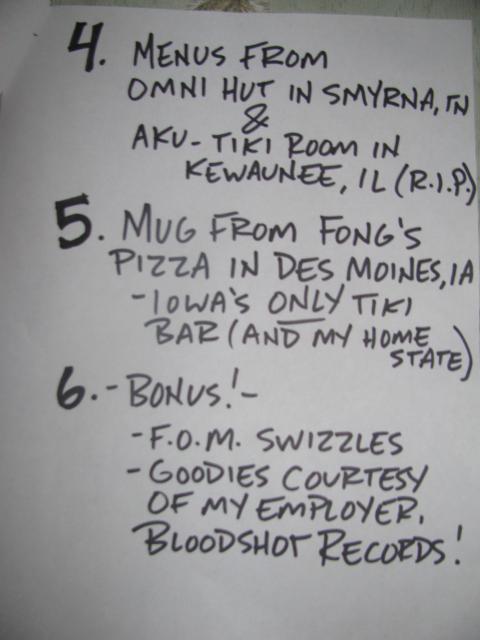 4. MENUS FROM
OMNI HUT IN SMYRNA, TN
&
AKU-TIKI ROOM IN
KEWAUNEE, IL (R.I.P.)
5. MUG FROM FONG'S
PIZZA IN DES MOINES, IA
- IOWA'S ONLY TIKI
BAR (AND MY HOME
STATE)
6. - BONUS! -
- F.O.M. SWIZZLES
- GOODIES COURTESY
OF MY EMPLOYER,
BLOODSHOT RECORDS!